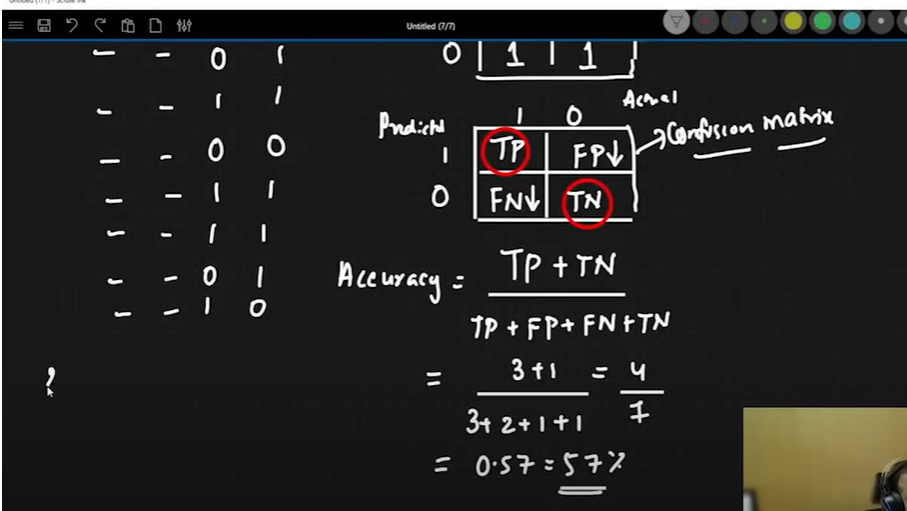 Untitled (7/7)
- - 0 1
- - 1 1
- - 0 0
- - 1 1
- - 1 1
- - 0 1
- - 1 0
0 1 1
1 0 Actual
Predicted
1 TP FP↓ → Confusion matrix
0 FN↓ TN
Accuracy = TP + TN
TP + FP + FN + TN
= 3+1 = 4
3+2+1+1 7
= 0.57 = 57%